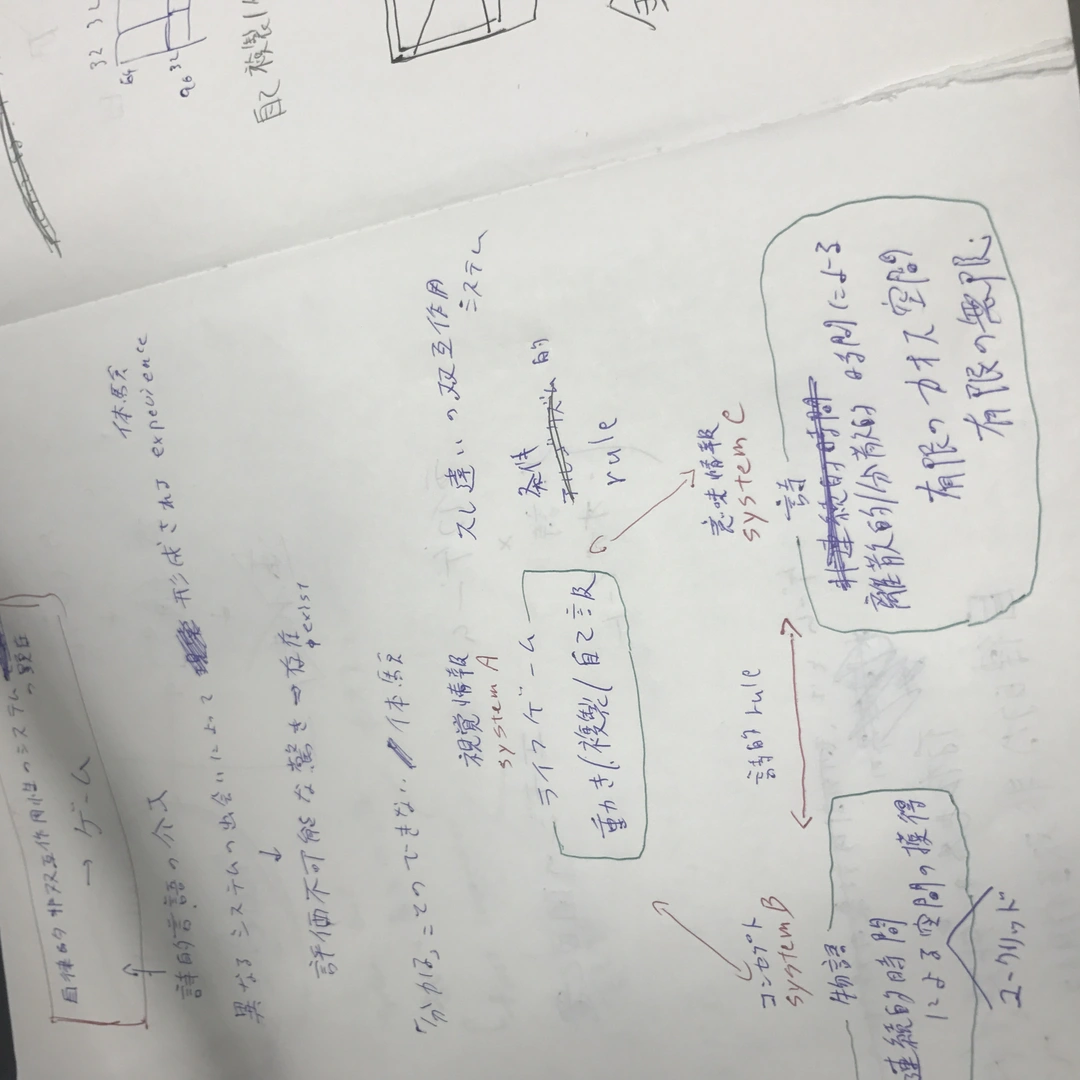 自律的非双互作用性のシステム
→ ゲーム
詩的言語の介入
異なるシステムの出会いによって 形成される experience
体験
↓
評価不可能な驚き → 存在
exist
「分かる」ことのできない 体験
スレ違いの双互作用
システム
視覚情報
system A
ライフゲーム
動き(複製)自己言及
条件
的
rule
意味情報
system C
詩
離散的(分散的)時間による
有限のカオス空間
有限の無限
詩的 rule
コンセプト
system B
物語
連続的時間
による空間の獲得
ユークリッド
自己複製
32 32
64
96 32